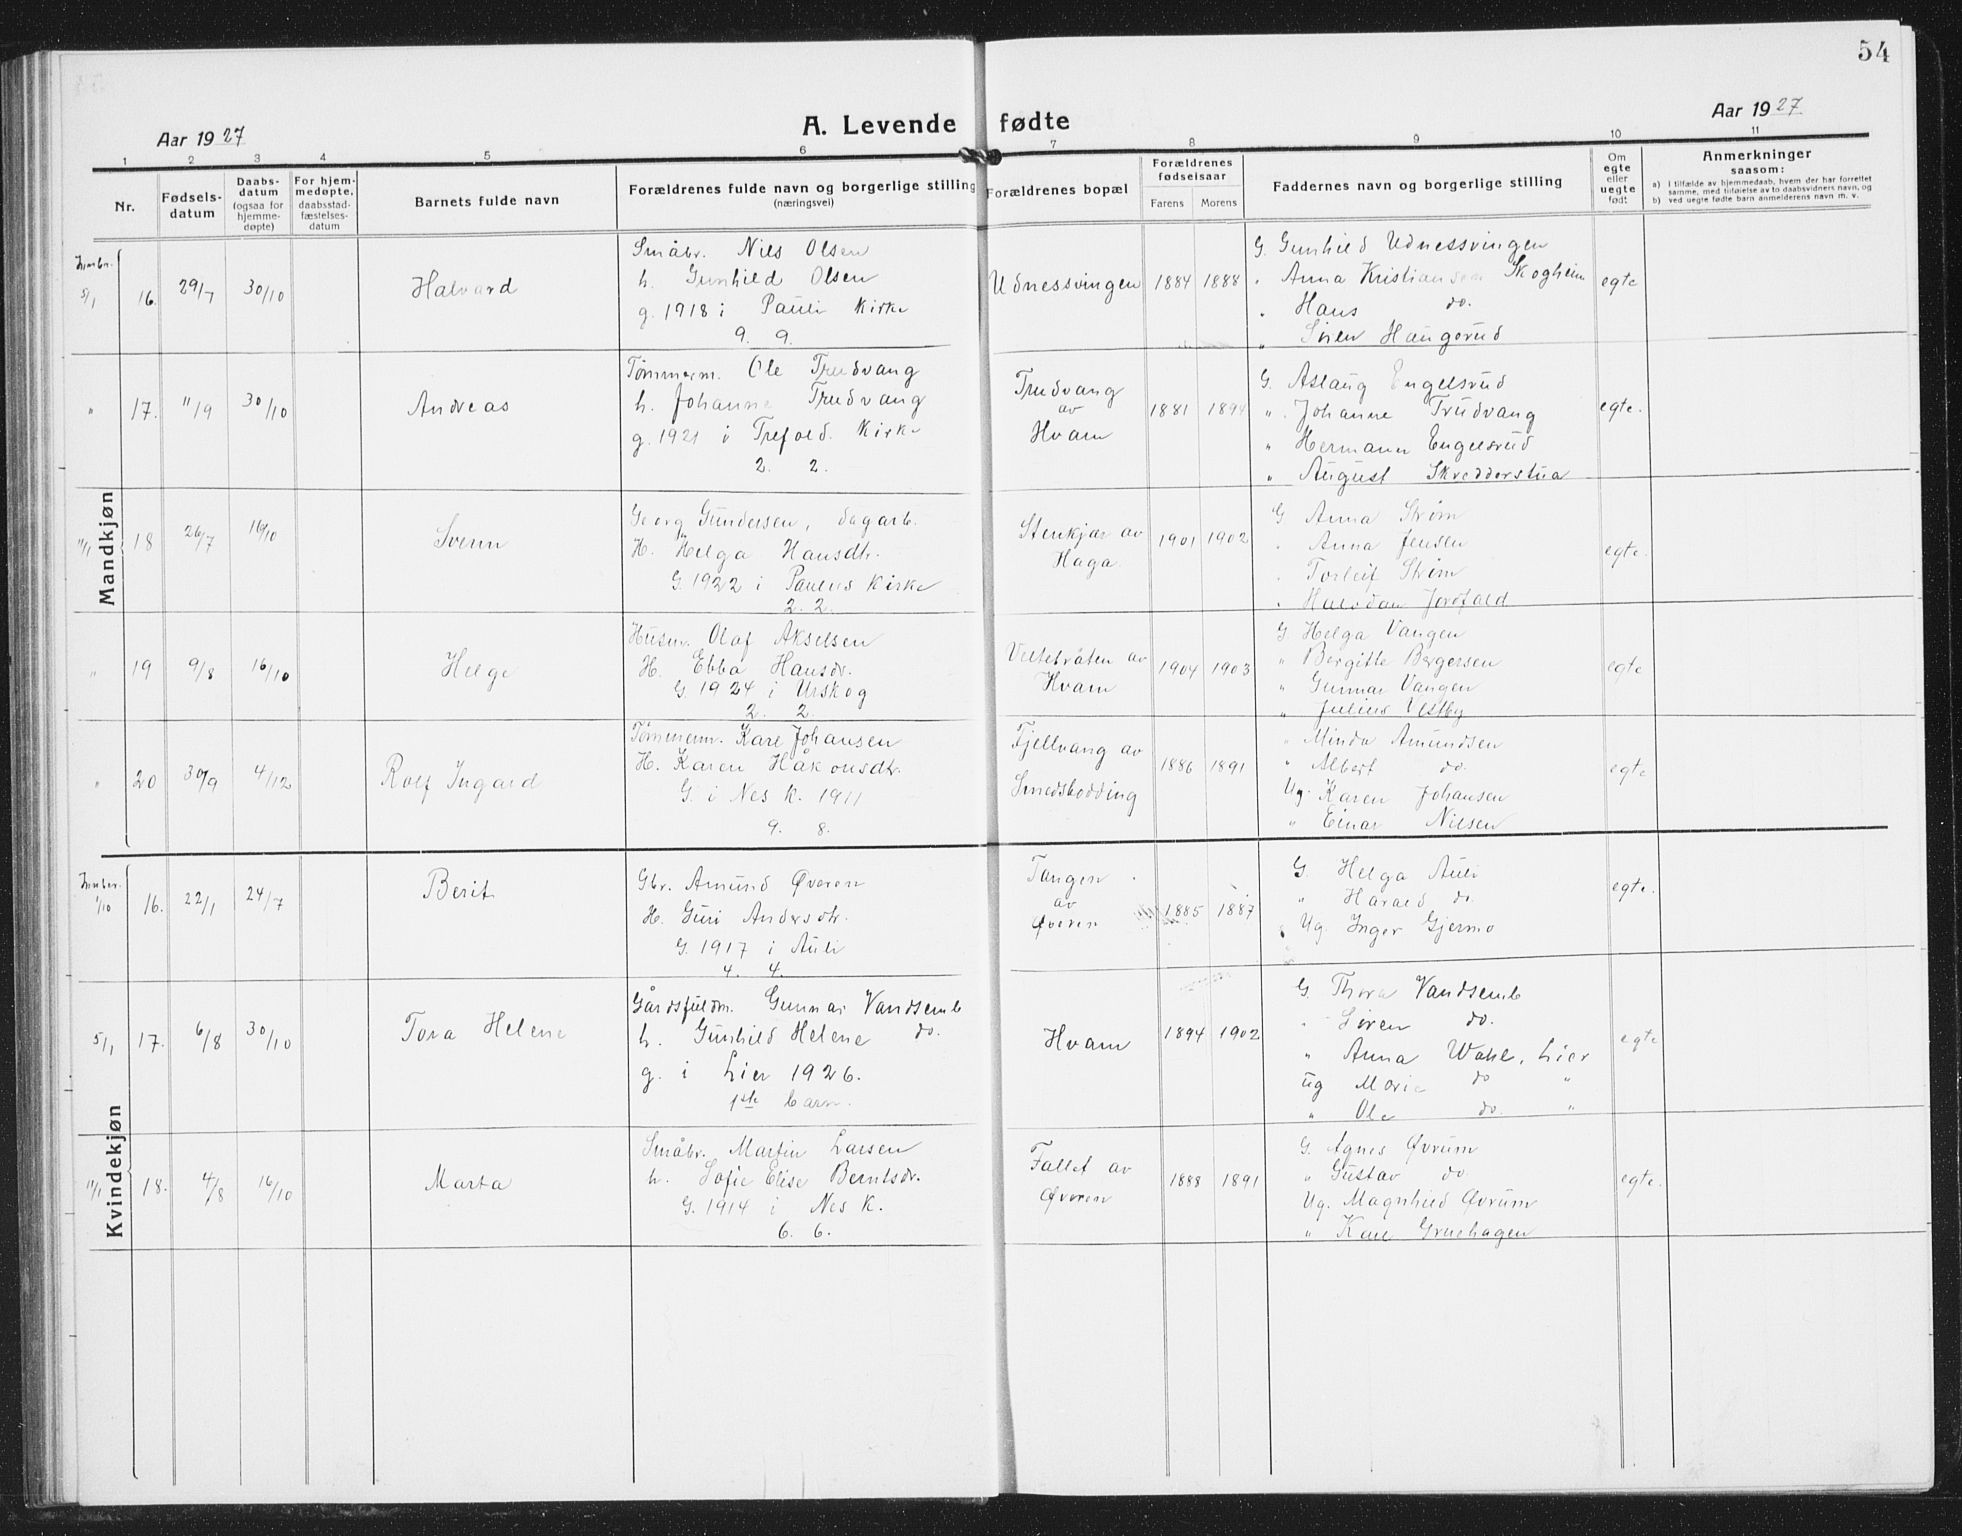 54
Aar 1927
A. Levende fødte
Aar 1927
1 2 3 4 5 6 7 8 9 10 11
Nr.
Fødsels-
datum
Daabs-
datum
(ogsaa for
hjemme-
døpte)
For hjem-
medøpte,
daabsstad-
fæstelses-
datum
Barnets fulde navn
Forældrenes fulde navn og borgerlige stilling
(næringsvei)
Forældrenes bopæl
Forældrenes
fødselsaar
Farens Morens
Faddernes navn og borgerlige stilling
Om
egte
eller
uegte
født
Anmerkninger
saasom:
a) I tilfælde av hjemmedaab, hvem der har forrettet
samme, med tilføielse av to daabsvidners navn, og
b) ved uegte fødte barn anmelderens navn m. v.
Mandkjøn
5/1 16. 29/7 30/10 Halvard
Småbr. Nils Olsen
h. Gunhild Olsen
g. 1918 i Pauli Kirke
9. 9.
Udnessvingen 1884 1888
G. Gunhild Udnessvingen
" Anna Kristiansen Skogheim
" Hans do.
" Søren Haugerud
egte
" 17. 11/9 30/10 Andreas
Tømmerm. Ole Trudvang
h. Johanne Trudvang
g. 1921 i Trefold. Kirke
2. 2.
Trudvang
av
Hvam
1881 1894
G. Aslaug Engelsrud
" Johanne Trudvang
" Hermann Engelsrud
" August Skredderstua
egte.
11/1 18 26/7 16/10 Svenn
Georg Gundersen, dagarb.
H. Helga Hansdtr.
G. 1922 i Paulus Kirke
2. 2.
Stenkjær av
Haga.
1901 1902
G Anna Strøm
" Anna Jensen
" Torleif Strøm
" Halvdan Jordfald
egte.
" 19 9/8 16/10 Helge
Husm. Olaf Akselsen
H. Ebba Hansdr.
G 1924 i Urskog
2. 2.
Veltebråten av
Hvam
1904 1903
G. Helga Vangen
" Bergitte Bergersen
" Gunnar Vangen
" Julius Vestby
egte
" 20 30/9 4/12 Rolf Ingard
Tømmerm. Kare Johansen
H. Karen Håkonsdtr.
G. i Nes K. 1911
9. 8.
Fjellvang av
Smedsbodding
1886 1891
" Minda Amundsen
" Albert do.
Ug. Karen Johansen
" Einar Nilsen
egte
Kvindekjøn
1/10 16. 22/1 24/7 Berit
Gbr. Amund Øveren
H. Guri Andersdtr.
G. 1917 i Auli
4. 4.
Tangen
av
Øveren
1885 1887
G. Helga Auli
" Harald do.
Ug. Inger Gjermo
egte.
5/1 17. 6/8 30/10 Tora Helene
Gårdsfuldm. Gunnar Vandsemb
h. Gunhild Helene do.
g. i Lier 1926.
1ste barn.
Hvam 1894 1902
G. Thora Vandsemb
" Søren do.
" Anna Wahl, Lier
ug Marie do "
" Ole do. "
egte
11/1 18. 4/8 16/10 Marta
Småbr. Martin Larsen
h. Sofie Elise Berntsdr.
G. 1914 i Nes K.
6. 6.
Fallet av
Øveren
1888 1891
G. Agnes Øvrum
" Gustav do.
Ug. Magnhild Øvrum
" Kare Gruehagen
egte.